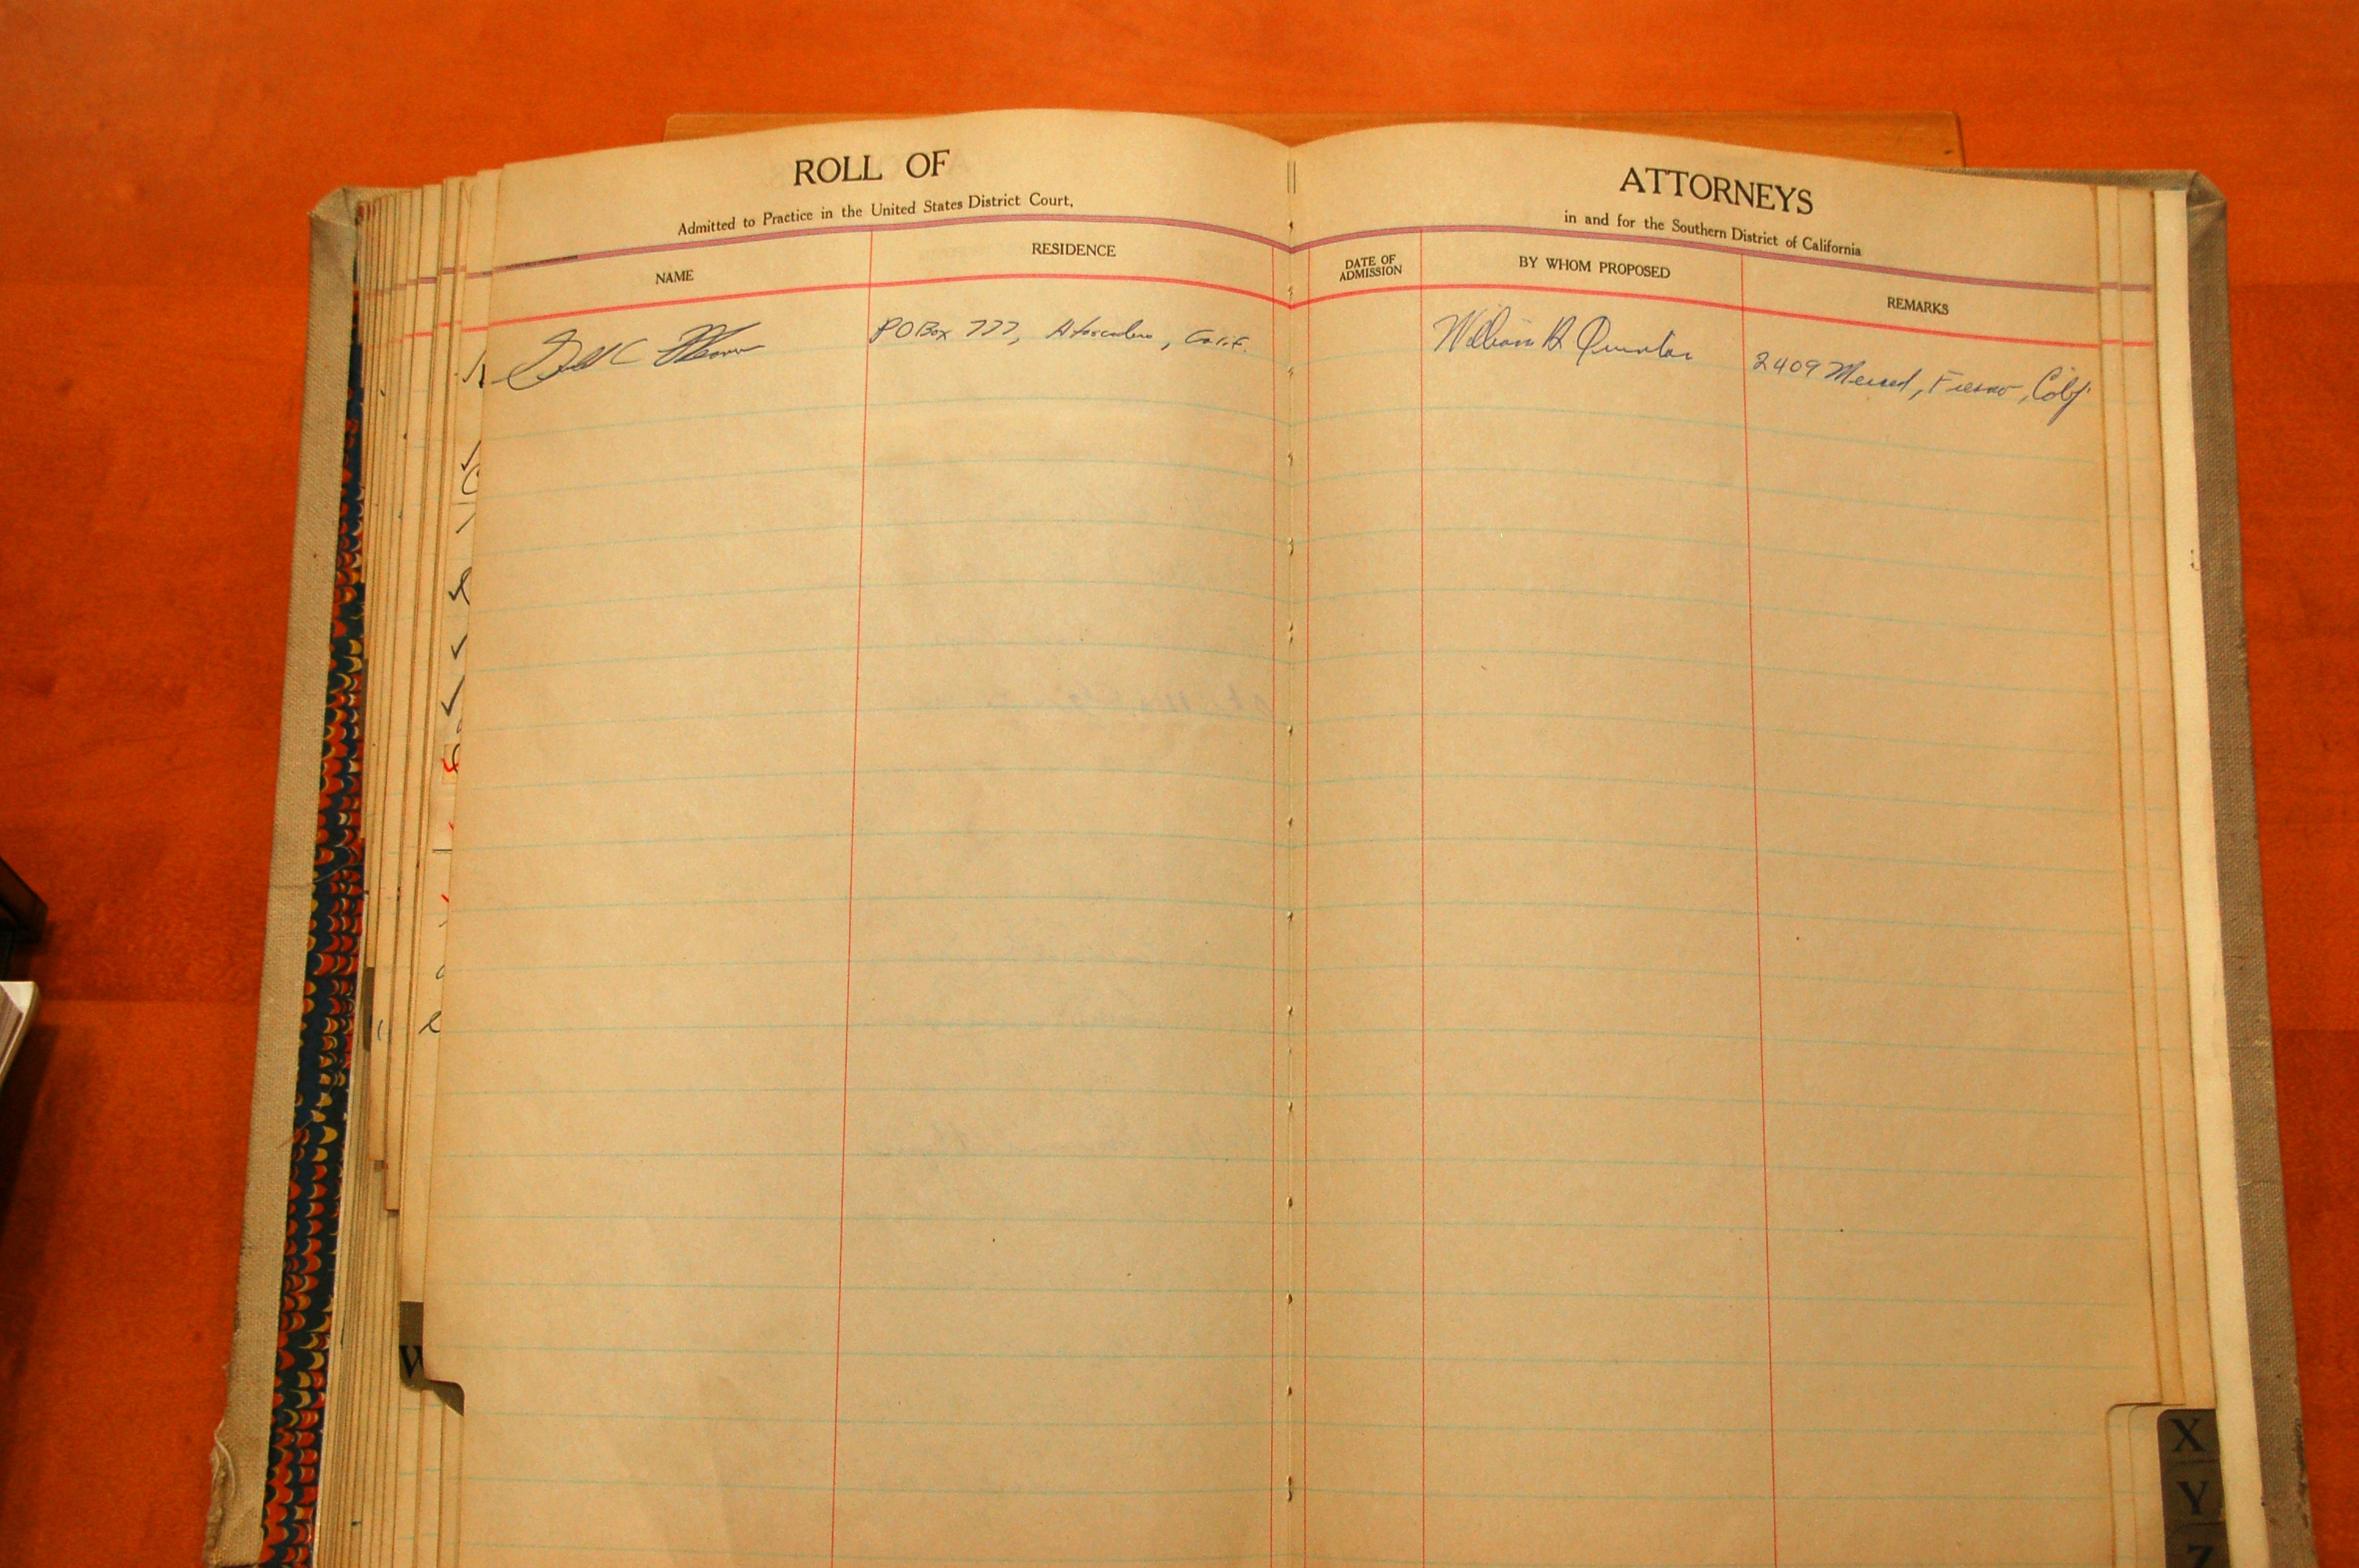 ROLL OF ATTORNEYS
Admitted to Practice in the United States District Court, in and for the Southern District of California
NAME RESIDENCE DATE OF ADMISSION BY WHOM PROPOSED REMARKS
C PO Box 777, Calif. William 2409 Merced, Fresno, Calif
W
X
Y
Z